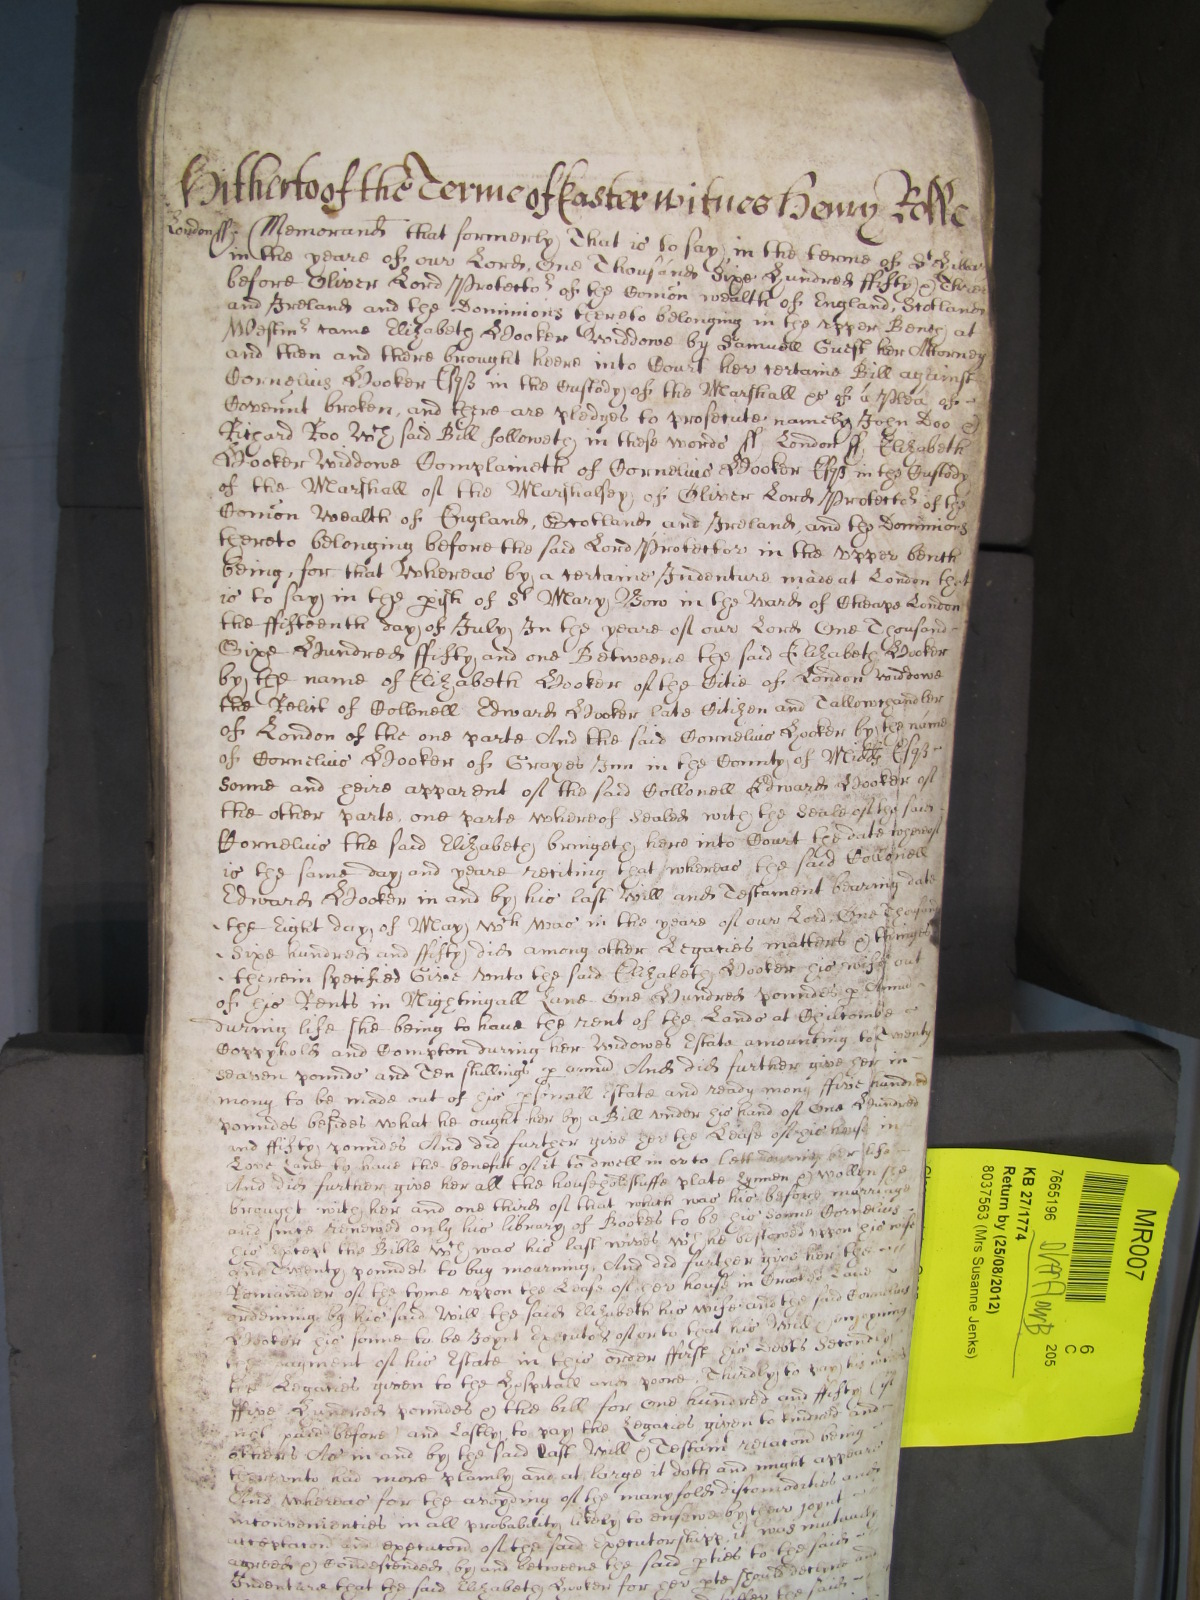 Hitherto of the Terme of Easter witnes Henry Rolle
London ss Memorand that formerly That is to say in the terme of St Hillar
in the yeare of our Lord One Thousand Sixe Hundred ffifty & Three
before Oliver Lord Protector of the Comon wealth of England, Scotland
and Ireland and the Dominions thereto belonging in the upper Bench at
Westmr came Elizabeth Hooker Widdowe by Samuell Guest her Attorney
and then and there brought heere into Court her certaine Bill against
Cornelius Hooker Esq in the Custody of the Marshall &c of a Plea of
Covennt broken, and there are pledges to prosecute namely John Doo &
Richard Roo Wch said Bill followeth in these words ss London ss Elizabeth
Hooker Widdowe Complaineth of Cornelius Hooker Esq in the Custody
of the Marshall of the Marshalsey of Oliver Lord Protector of the
Comon Wealth of England, Scotland and Ireland, and the Dominions
thereto belonging before the said Lord Protector in the upper bench
being, for that Whereas by a certaine Indenture made at London that
is to say in the pish of St Mary Bow in the Ward of Cheape London
the ffifteenth day of July In the yeare of our Lord One Thousand
Sixe Hundred ffifty and one Betweene the said Elizabeth Hooker
by the name of Elizabeth Hooker of the Citie of London widdowe
the Relict of Collonell Edward Hooker late Citizen and Tallowchandler
of London of the one parte And the said Cornelius Hooker by the name
of Cornelius Hooker of Grayes Inn in the County of Midd Esq
Sonne and heire apparent of the said Collonell Edward Hooker of
the other parte, one parte whereof sealed with the Seale of the said
Cornelius the said Elizabeth bringeth here into Court the date whereof
is the same day and yeare reciting that whereas the said Collonell
Edward Hooker in and by his last Will and Testament bearing date
the Eight day of May wch was in the yeare of our Lord One Thousand
Sixe hundred and ffifty did among other Legacies matters & things
therein specified Give unto the said Elizabeth Hooker his wife out
of his Rents in Nightingall Lane One Hundred pounds p Annu
during life she being to have the rent of the Lands at Chilcombe
Coppyhold and Compton during her Widowes Estate amounting to Twenty
seaven pounds and Ten shillings p annu And did further give her in
mony to be made out of his psonall estate and ready mony ffive hundred
pounds besides what he ought her by a Bill under his hand of One Hundred
and ffifty pounds And did further give her the Lease of his house in
Love Lane to have the benefit of it to dwell in or to lett during her life
And did further give her all the householdstuffe plate Lynnen & wollen she
brought with her and one third of that which was his before marriage
and since renewed only his library of Bookes to be his sonne Cornelius
his except the Bible wch was his last wives wch he bestowed uppon his wife
and Twenty pounds to buy mourning, And did further give her the
Remainder of the tyme uppon the Lease of her house in Crooked Lane
ordeining by his said Will the said Elizabeth his wife and the said Cornelius
Hooker his sonne to be Joynt Executors of or to that his Will & enjoyning
the paiment of his Estate in this order ffirst his Debts Secondly
the Legacies given to the Hospitall and poore, Thirdly to pay his
ffive Hundred pounds & the bill for One hundred and ffifty if
not paid before and Lastly to pay the Legacies given to kindred and
others As in and by the said Last Will & Testamt relacon being
thereunto had more plainly and at large it doth and might appeare
And whereas for the avoyding of the manyfold discomodities and
inconveniencies in all probability likely to ensewe by their joynt
acceptacon and execucon of the said Executorshipp, it was mutually
agreed & Condescended by and betweene the said pties to the said
Indenture that the said Elizabeth Hooker for her pte should decline and
MR007
6
C
205
7665196
KB 27/1774
Return by (25/08/2012)
8037563 (Mrs Susanne Jenks)